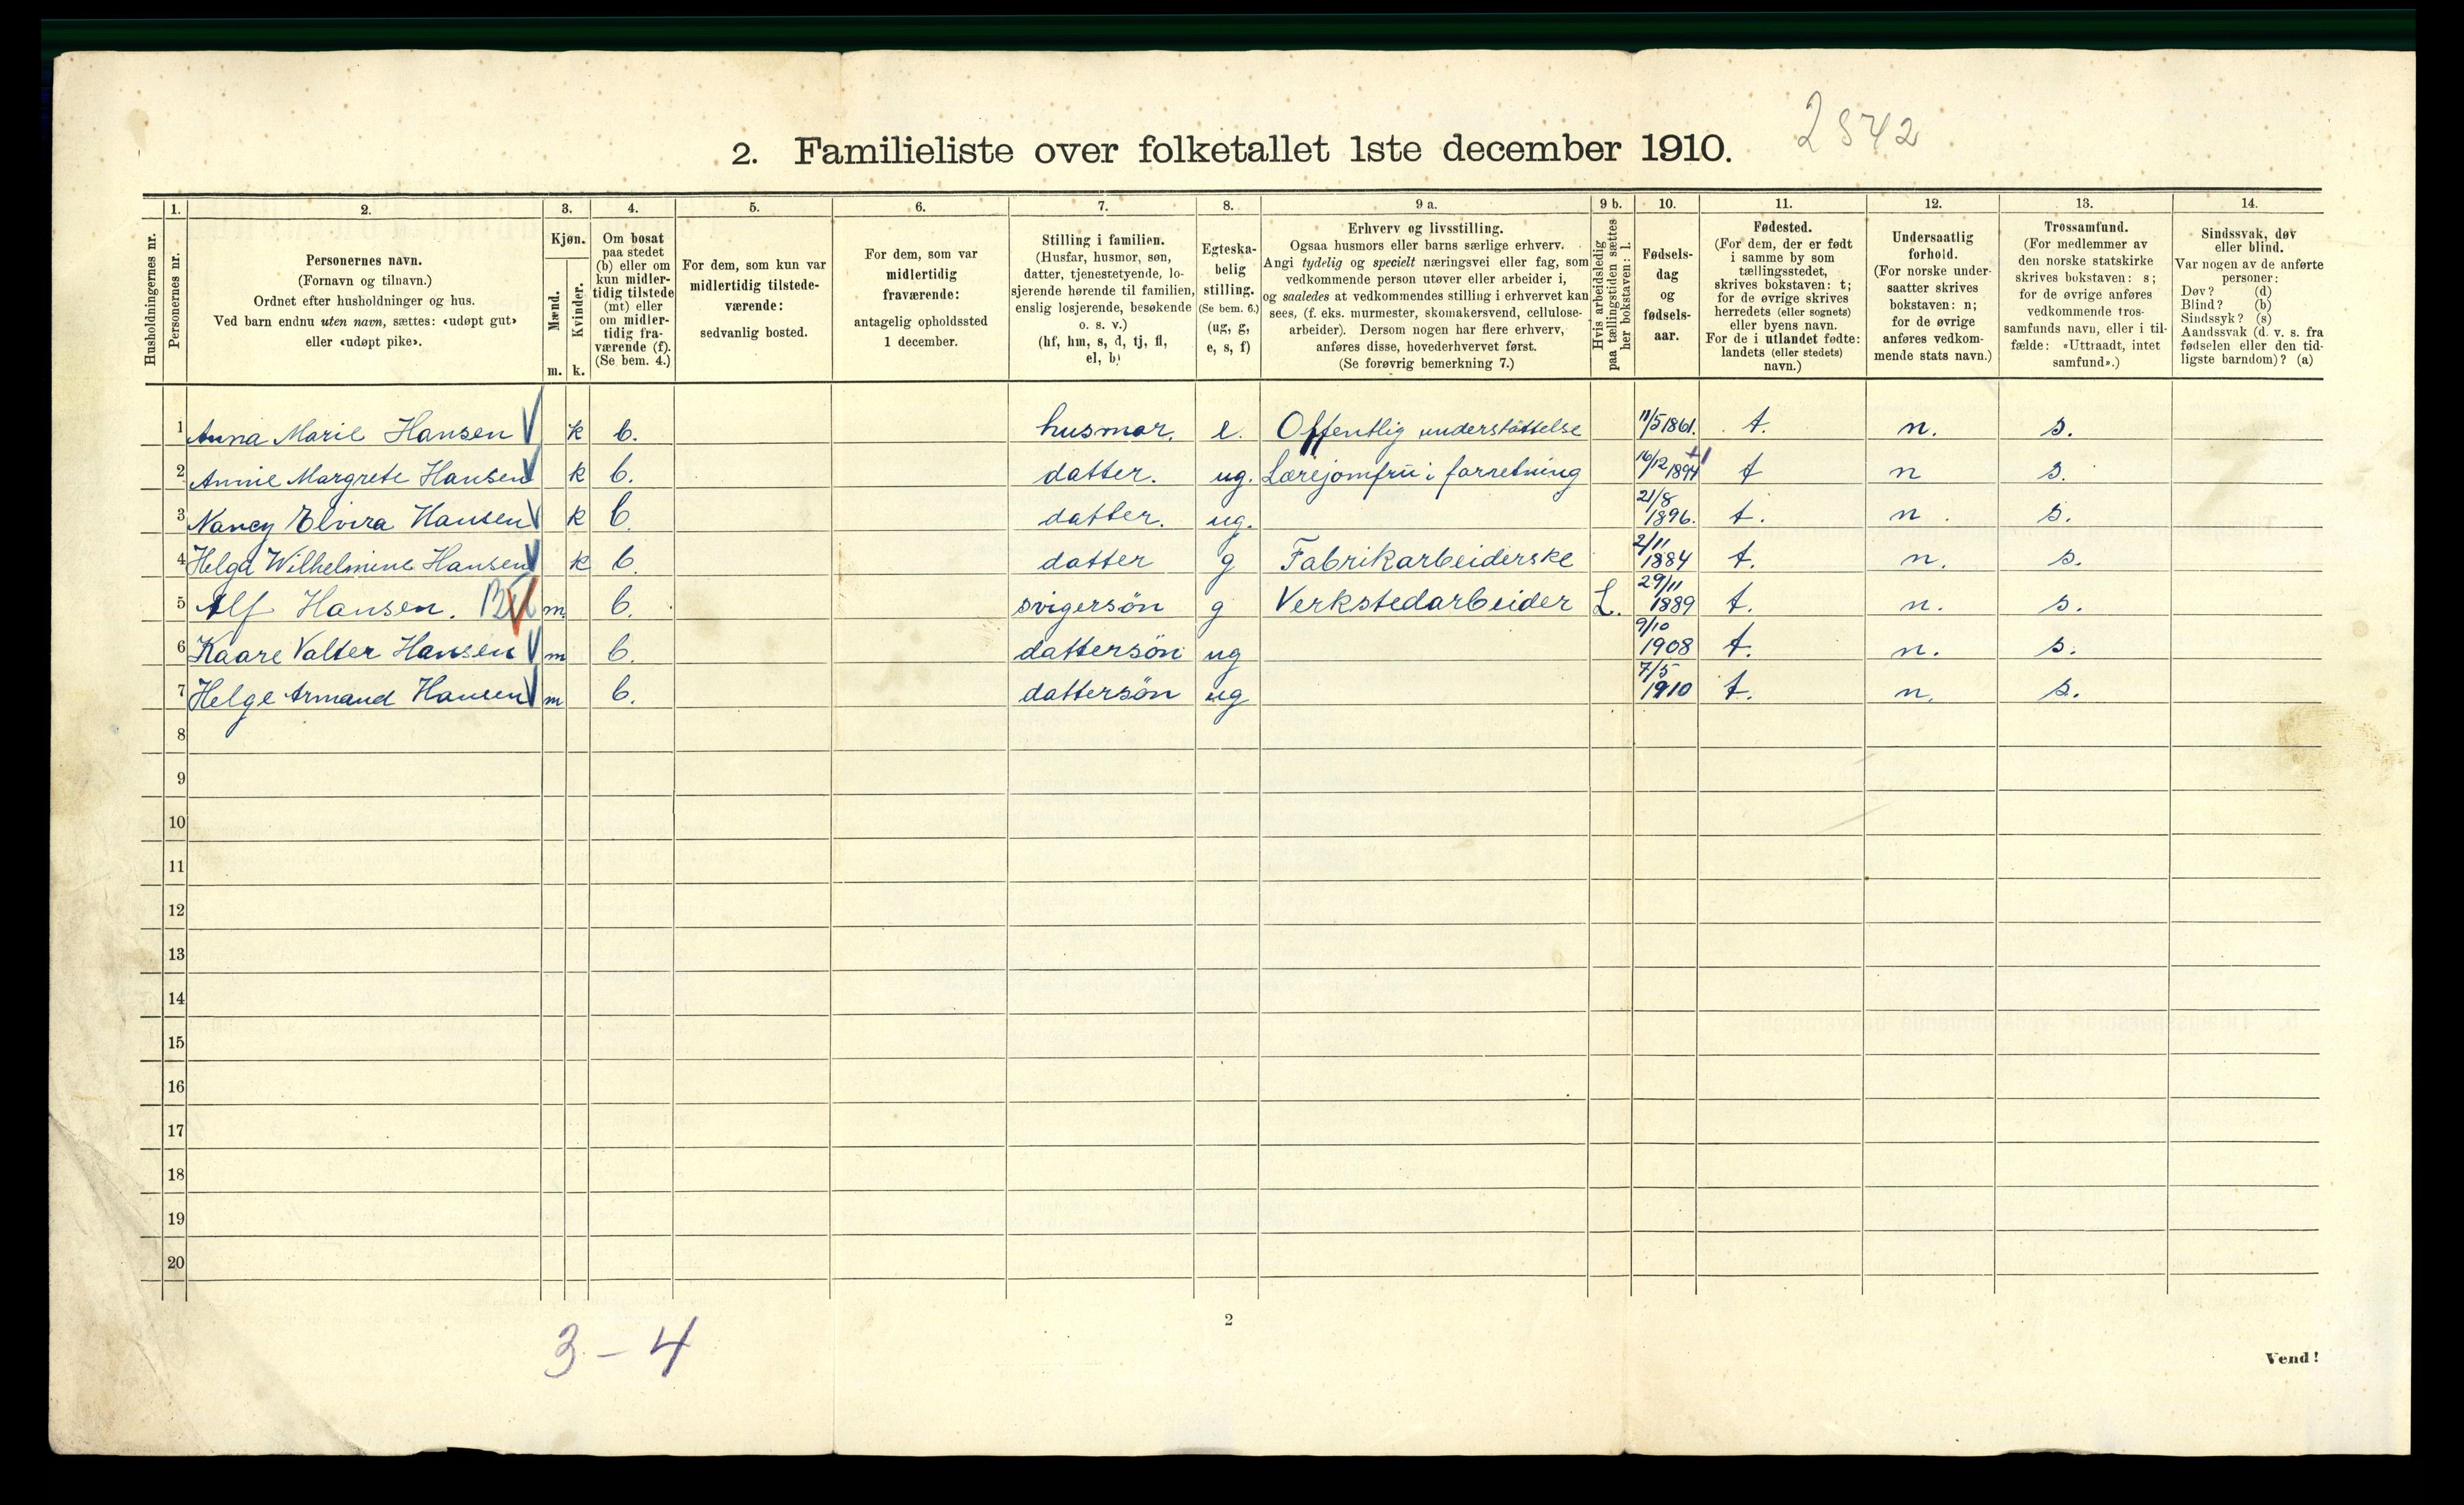 2842
2. Familieliste over folketallet 1ste december 1910.
1. 2. 3. 4. 5. 6. 7. 8. 9 a. 9 b. 10. 11. 12. 13. 14.
Husholdningernes nr.
Personernes nr.
Personernes navn.
(Fornavn og tilnavn.)
Ordnet efter husholdninger og hus.
Ved barn endnu uten navn, sættes: «udøpt gut»
eller «udøpt pike».
Kjøn.
Mænd.
Kvinder.
m. k.
Om bosat
paa stedet
(b) eller om
kun midler-
tidig tilstede
(mt) eller
om midler-
tidig fra-
værende (f).
(Se bem. 4.)
For dem, som kun var
midlertidig tilstede-
værende:
sedvanlig bosted.
For dem, som var
midlertidig
fraværende:
antagelig opholdssted
1 december.
Stilling i familien.
(Husfar, husmor, søn,
datter, tjenestetyende, lo-
sjerende hørende til familien,
enslig losjerende, besøkende
o. s. v.)
(hf, hm, s, d, tj, fl,
el, b)
Egteska-
belig
stilling.
(Se bem. 6.)
(ug, g,
e, s, f)
Erhverv og livsstilling.
Ogsaa husmors eller barns særlige erhverv.
Angi tydelig og specielt næringsvei eller fag, som
vedkommende person utøver eller arbeider i,
og saaledes at vedkommendes stilling i erhvervet kan
sees, (f. eks. murmester, skomakersvend, cellulose-
arbeider). Dersom nogen har flere erhverv,
anføres disse, hovederhvervet først.
(Se forøvrig bemerkning 7.)
Hvis arbeidsledig
paa tællingstiden sættes
her bokstaven: l.
Fødsels-
dag
og
fødsels-
aar.
Fødested.
(For dem, der er født
i samme by som
tællingsstedet,
skrives bokstaven: t;
for de øvrige skrives
herredets (eller sognets)
eller byens navn.
For de i utlandet fødte:
landets (eller stedets)
navn.)
Undersaatlig
forhold.
(For norske under-
saatter skrives
bokstaven: n;
for de øvrige
anføres vedkom-
mende stats navn.)
Trossamfund.
(For medlemmer av
den norske statskirke
skrives bokstaven: s;
for de øvrige anføres
vedkommende tros-
samfunds navn, eller i til-
fælde: «Uttraadt, intet
samfund».)
Sindssvak, døv
eller blind.
Var nogen av de anførte
personer:
Døv? (d)
Blind? (b)
Sindssyk? (s)
Aandssvak (d. v. s. fra
fødselen eller den tid-
ligste barndom)? (a)
1 Anna Marie Hansen k b. husmor. e. Offentlig understöttelse 11/5 1861. t. n. s.
2 Annie Margrete Hansen k b. datter. ug. Lærejomfru i forretning 16/12 1894 t n s.
3 Nancy Elvira Hansen k b datter. ug. 21/8 1896. t. n. s.
4 Helga Wilhelmine Hansen k b. datter g Fabrikarbeiderske 2/11 1884 t. n. s.
5 Alf Hansen. m. b. svigersön g Verkstedarbeider L. 29/11 1889 t. n. s.
6 Kaare Valter Hansen m b. dattersön ug 9/10 1908 t. n. s.
7 Helge Armand Hansen m b. dattersön ug 7/5 1910 t. n. s.
8
9
10
11
12
13
14
15
16
17
18
19
20
3 - 4
2
Vend!